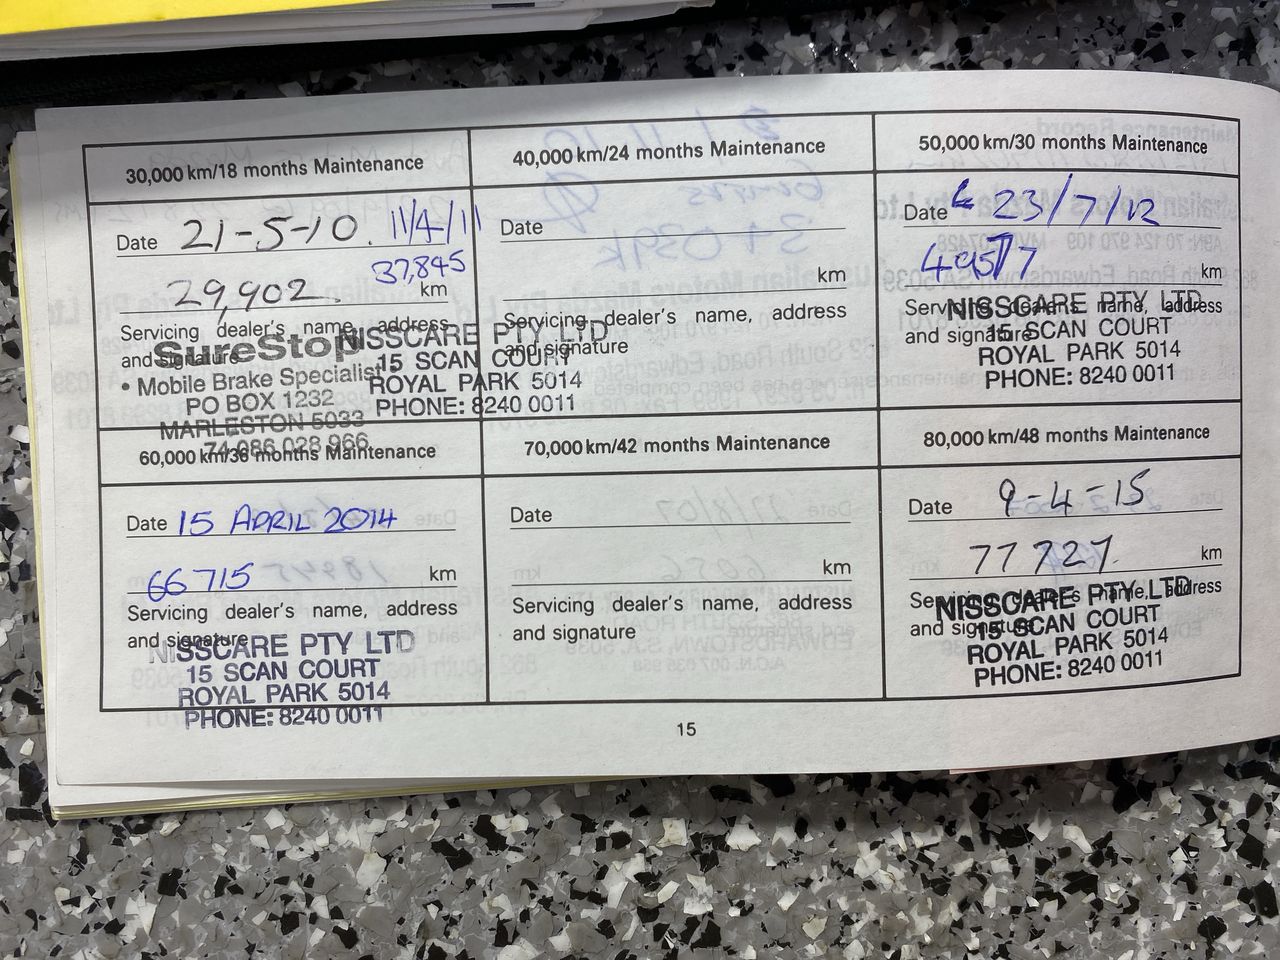 30,000 km/18 months Maintenance
Date 21-5-10. 11/4/11
29,902. 37,845 km
Servicing dealer's name, address
and signature
SureStop
• Mobile Brake Specialist
PO BOX 1232
MARLESTON 5033
74 086 028 966
NISSCARE PTY LTD
15 SCAN COURT
ROYAL PARK 5014
PHONE: 8240 0011
40,000 km/24 months Maintenance
Date
km
Servicing dealer's name, address
and signature
50,000 km/30 months Maintenance
Date 23/7/12
km
Servicing dealer's name, address
and signature
NISSCARE PTY LTD
15 SCAN COURT
ROYAL PARK 5014
PHONE: 8240 0011
60,000 km/36 months Maintenance
Date 15 APRIL 2014
66715 km
Servicing dealer's name, address
and signature
NISSCARE PTY LTD
15 SCAN COURT
ROYAL PARK 5014
PHONE: 8240 0011
70,000 km/42 months Maintenance
Date
km
Servicing dealer's name, address
and signature
80,000 km/48 months Maintenance
Date 9-4-15
77727. km
Servicing dealer's name, address
and signature
NISSCARE PTY LTD
15 SCAN COURT
ROYAL PARK 5014
PHONE: 8240 0011
15